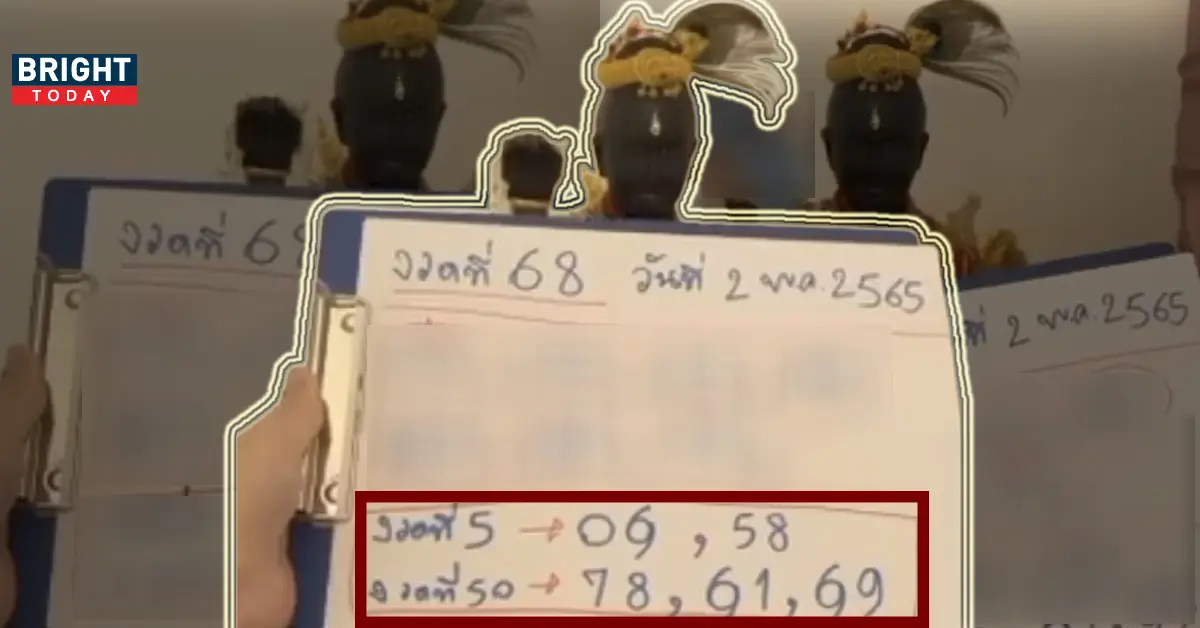 BRIGHT
TODAY
งวดที่ 68 วันที่ 2 พ.ค. 2565
งวดที่ 6
ที่ 2 พ.ค. 2565
งวดที่ 5 → 06 , 58
งวดที่ 50 → 78 , 61 , 69